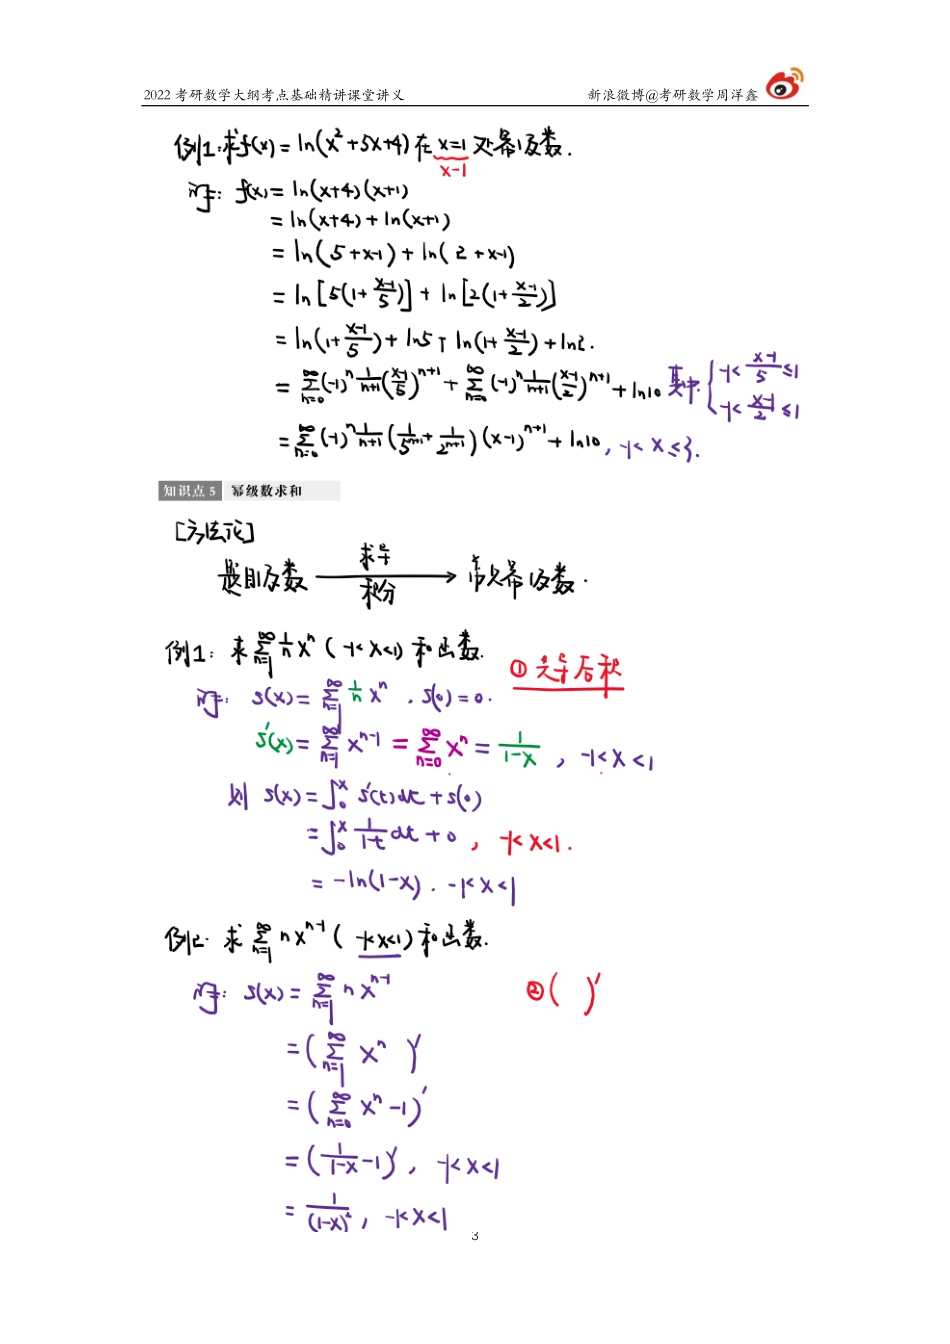 2022 考研数学大纲考点基础精讲课堂讲义 新浪微博@考研数学周洋鑫
例1:求f(x)=ln(x²+5x+4)在x=1处幂级数.
x-1
解: f(x)=ln(x+4)(x+1)
=ln(x+4)+ln(x+1)
=ln(5+x-1)+ln(2+x-1)
=ln[5(1+(x-1)/5)]+ln[2(1+(x-1)/2)]
=ln(1+(x-1)/5)+ln5+ln(1+(x-1)/2)+ln2.
=∑_{n=0}^{∞}(-1)^n 1/(n+1) ((x-1)/5)^{n+1}+∑_{n=0}^{∞}(-1)^n 1/(n+1) ((x-1)/2)^{n+1}+ln10 其中 { -1<(x-1)/5≤1
-1<(x-1)/2≤1
=∑_{n=0}^{∞}(-1)^n 1/(n+1) (1/5^{n+1}+1/2^{n+1})(x-1)^{n+1}+ln10, -1<x≤3.
知识点 5 幂级数求和
[方法论]
题目级数 求导 积分 → 常见幂级数.
例1: 求∑_{n=1}^{∞} 1/n x^n (-1<x<1)和函数.
①先导后积
解: s(x)=∑_{n=1}^{∞} 1/n x^n . s(0)=0.
s'(x)=∑_{n=1}^{∞} x^{n-1}=∑_{n=0}^{∞} x^n=1/(1-x), -1<x<1
则 s(x)=∫_0^x s'(t)dt+s(0)
=∫_0^x 1/(1-t) dt+0, -1<x<1.
=-ln(1-x). -1<x<1
例2: 求∑_{n=1}^{∞} nx^{n-1} (-1<x<1)和函数.
解: s(x)=∑_{n=1}^{∞} nx^{n-1} ②( )'
=(∑_{n=1}^{∞} x^n )'
=(∑_{n=0}^{∞} x^n-1)'
=(1/(1-x)-1)', -1<x<1
=1/(1-x)², -1<x<1
3